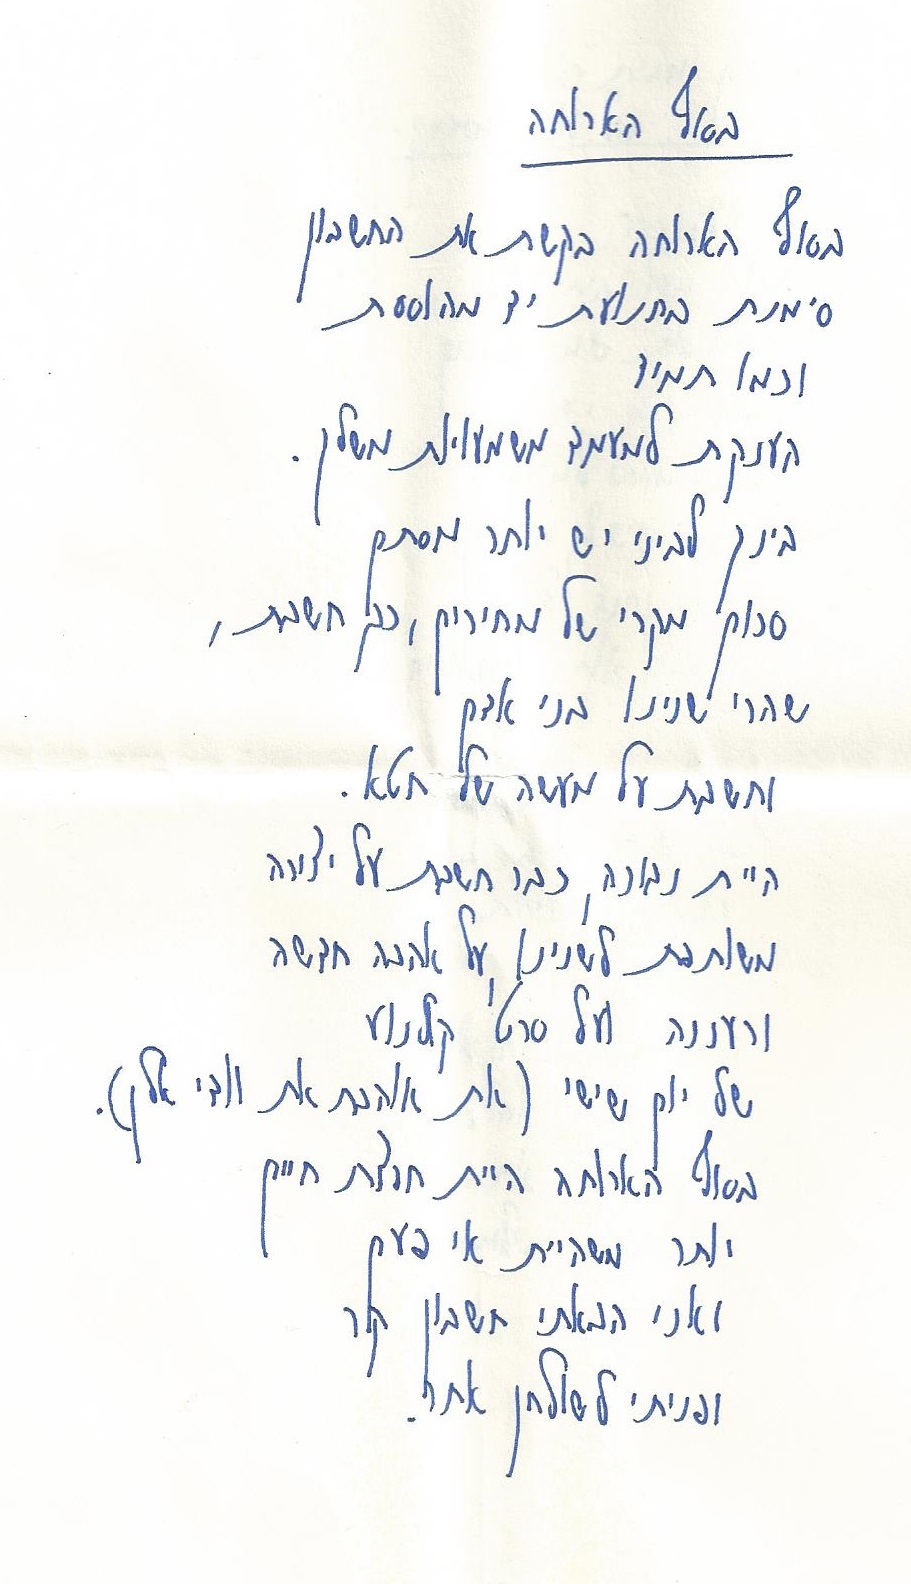 בסוף הארוחה
בסוף הארוחה בקשת את החשבון
סימנת בתנועת יד מהוססת
וכמו תמיד
הענקת למעמד משמעויות משלך.
בינך לביני יש יותר מסתם
סכום מקרי של מחירים, כך חשבת,
שהרי שנינו בני אדם
וחשבת על מעשה של חטא.
היית נבונה, כבר חשבת על יצירה
משותפת לשנינו, על אהבה חדשה
ורעננה ועל סרטי קולנוע
של יום שישי (את אוהבת את וודי אלן).
בסוף הארוחה היית חרוצת חיים
יותר משהיית אי פעם
ואני הבאתי חשבון קר
ופניתי לשולחן אחר.